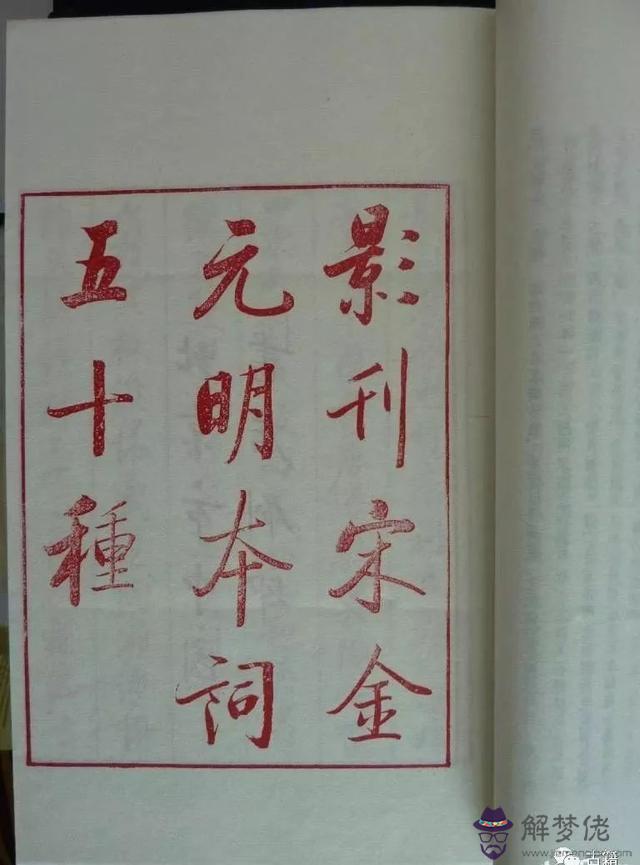 影刊宋金
元明本词
五十種
解梦佬